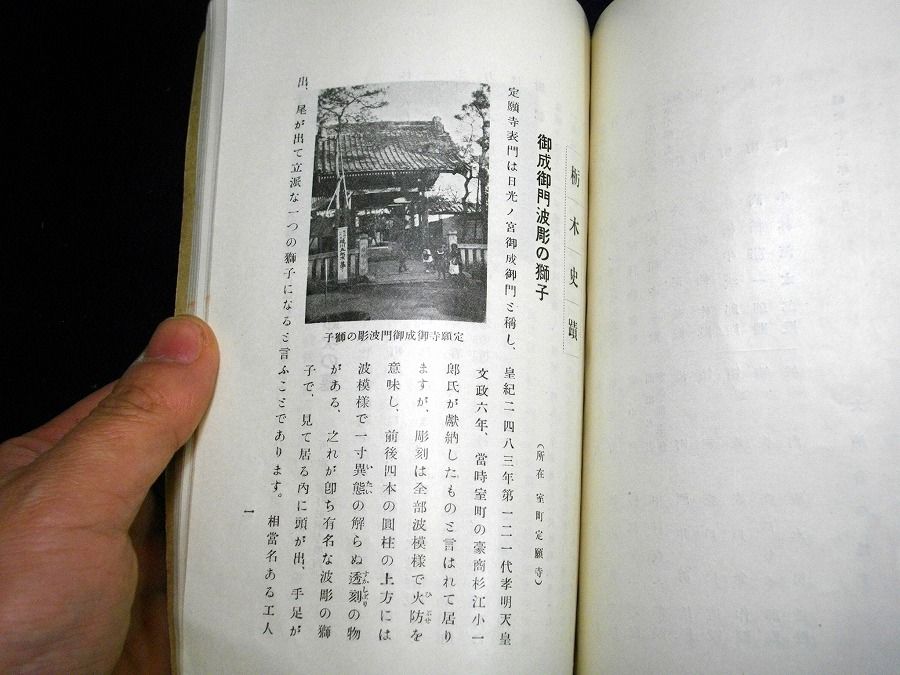 栃木史蹟
御成御門波彫の獅子
(所在 室町定願寺)
定願寺表門は日光ノ宮御成御門と稱し、皇紀二四八三年第一二一代孝明天皇
文政六年、當時室町の豪商杉江小一
郎氏が獻納したものと言はれて居り
ますが、彫刻は全部波模樣で火防を
意味し、前後四本の圓柱の上方には
波模樣で一寸異態の解らぬ透刻の物
がある、之れが卽ち有名な波彫の獅
子で、見て居る內に頭が出、手足が
出、尾が出て立派な一つの獅子になると言ふことであります。 相當名ある工人
定願寺御成御門波彫の獅子
一